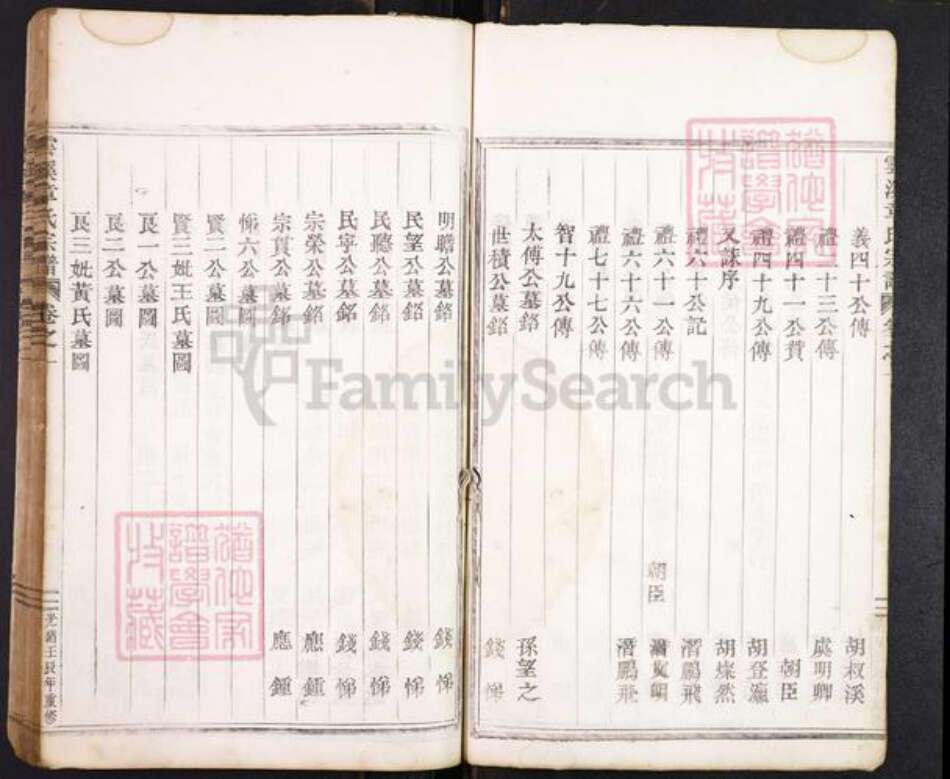 義四十公傳 胡叔溪
禮二十三公傳 虞明卿
禮四十一公賛 朝臣
禮四十九公傳 胡登瀛
又誄序 胡燦然
禮六十公記 潛鵬飛
禮六十一公傳 朝臣
禮六十六公傳 潛鵬飛
禮七十七公傳
智十九公傳
太傅公墓銘 孫望之
世積公墓銘 錢悌
明聰公墓銘 錢悌
民望公墓銘 錢悌
民聽公墓銘 錢悌
民宇公墓銘 錢悌
宗榮公墓銘 應鍾
宗貫公墓銘 應鍾
悌六公墓圖
賢二公墓圖
賢三妣王氏墓圖
良一公墓圖
良二公墓圖
良三妣黃氏墓圖
雲溪章氏宗譜 卷之一
光緒壬辰年重修
FamilySearch